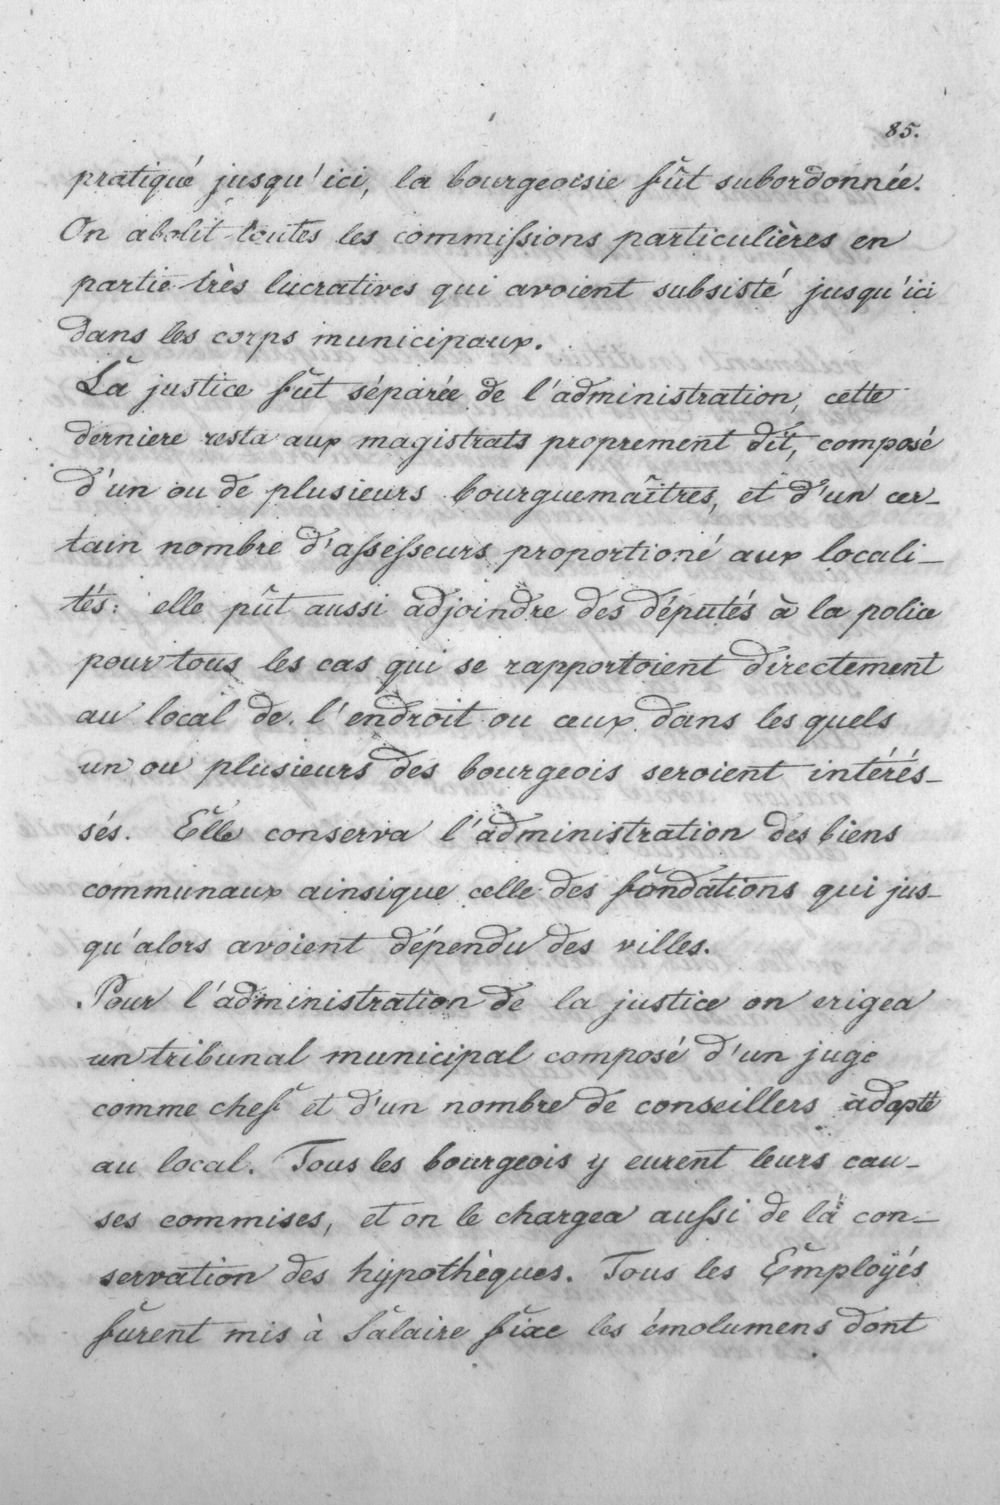 85.
pratiqué jusqu'ici, la bourgeoisie fût subordonnée.
On abolit toutes les commissions particulières en
partie très lucratives qui avoient subsisté jusqu'ici
dans les corps municipaux.
La justice fût séparée de l'administration, cette
derniere resta aux magistrats proprement dit, composé
d'un ou de plusieurs bourguemaîtres, et d'un cer-
tain nombre d'assesseurs proportioné aux locali-
tés: elle pût aussi adjoindre des députés à la police
pour tous les cas qui se rapportoient directement
au local de l'endroit ou ceux dans les quels
un ou plusieurs des bourgeois seroient intérés-
sés. Elle conserva l'administration des biens
communaux ainsique celle des fondations qui jus-
qu'alors avoient dépendu des villes.
Pour l'administration de la justice on erigea
un tribunal municipal composé d'un juge
comme chef et d'un nombre de conseillers adapté
au local. Tous les bourgeois y eurent leurs cau-
ses commises, et on le chargea aussi de la con-
servation des hypothèques. Tous les Employés
furent mis à Salaire fixe les émolumens dont